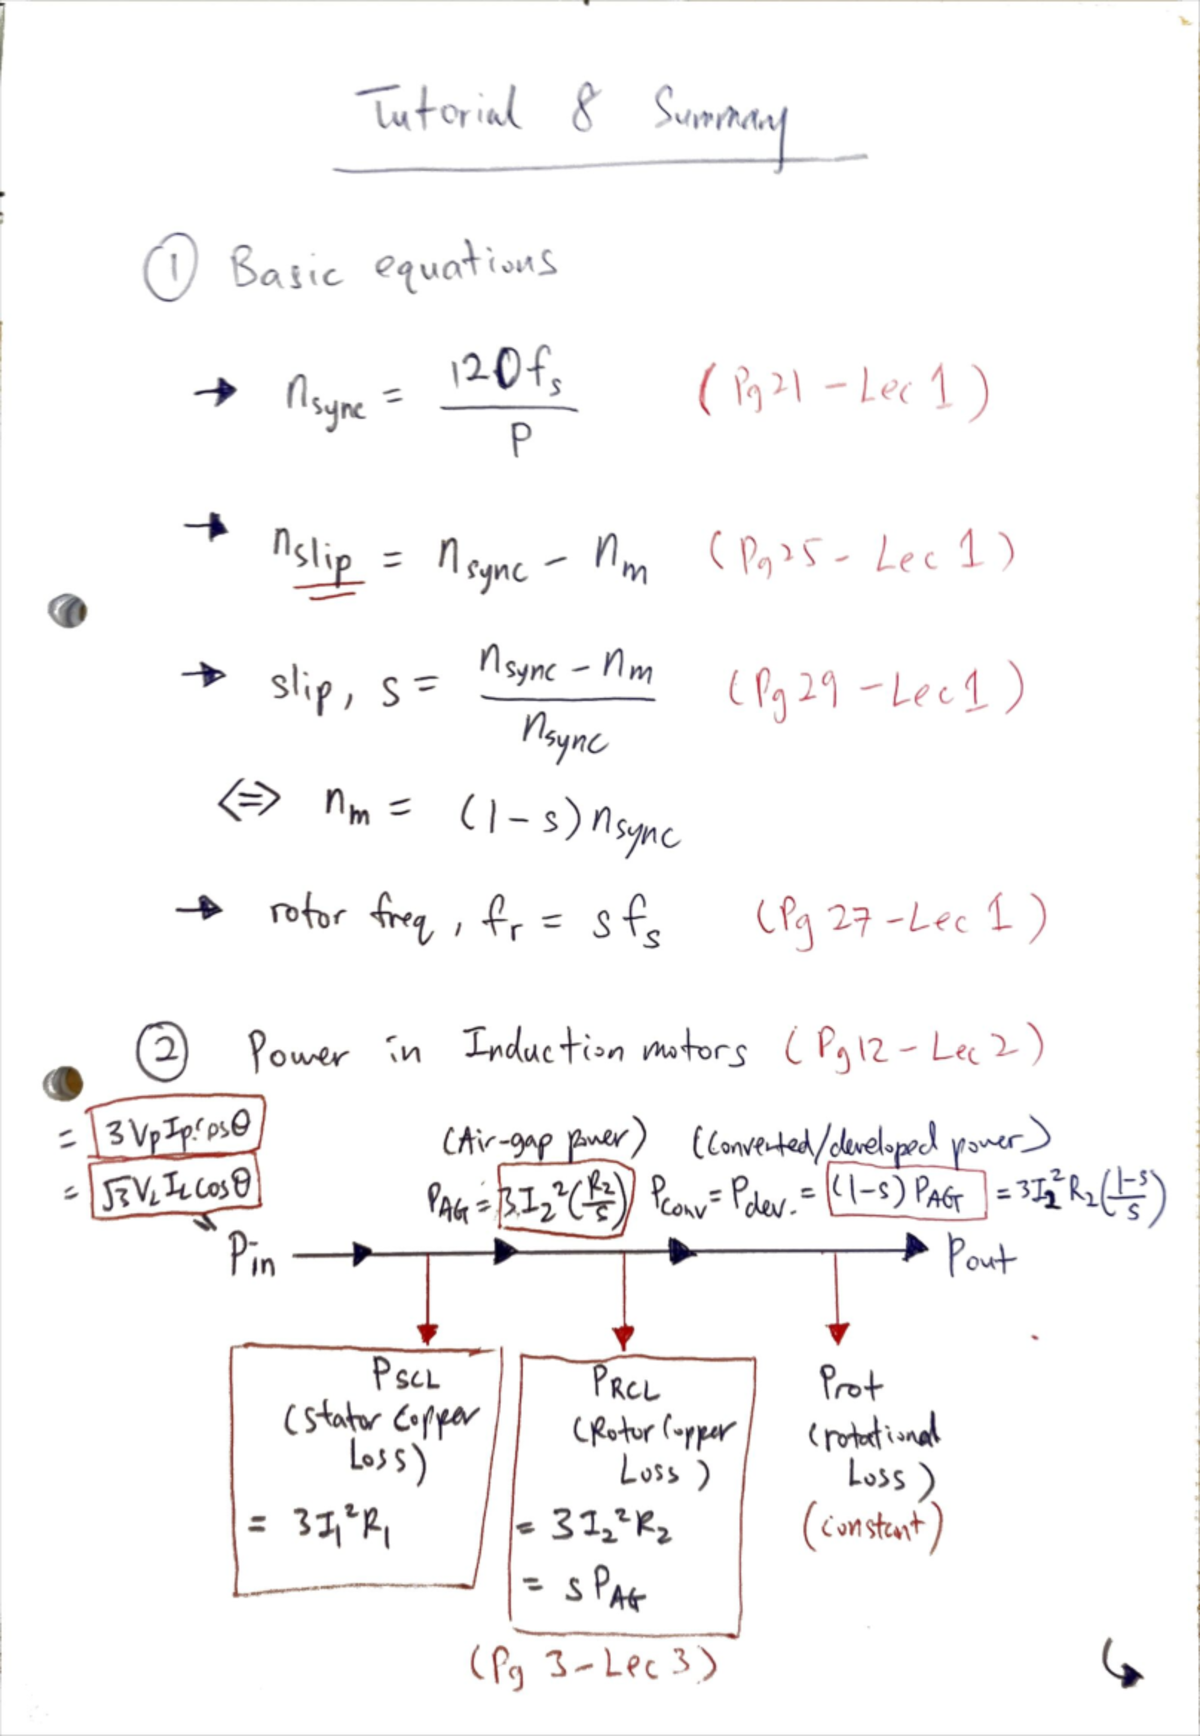 Tutorial 8 Summary
① Basic equations
→ nsync = 120fs / P (Pg 21 - Lec 1)
→ nslip = nsync - nm (Pg 25 - Lec 1)
→ slip, s = nsync - nm / nsync (Pg 29 - Lec 1)
⇔ nm = (1-s) nsync
→ rotor freq, fr = s fs (Pg 27 - Lec 1)
② Power in Induction motors (Pg 12 - Lec 2)
= 3VpIpcosθ
= √3VLILcosθ
(Air-gap power) (Converted/developed power)
PAG = 3I2²(R2/s) Pconv = Pdev. = (1-s) PAG = 3I2²R2(1-s/s)
Pin Pout
PSCL
(Stator Copper
Loss)
= 3I1²R1
PRCL
(Rotor Copper
Loss)
= 3I2²R2
= s PAG
(Pg 3 - Lec 3)
Prot
(rotational
Loss)
(constant)